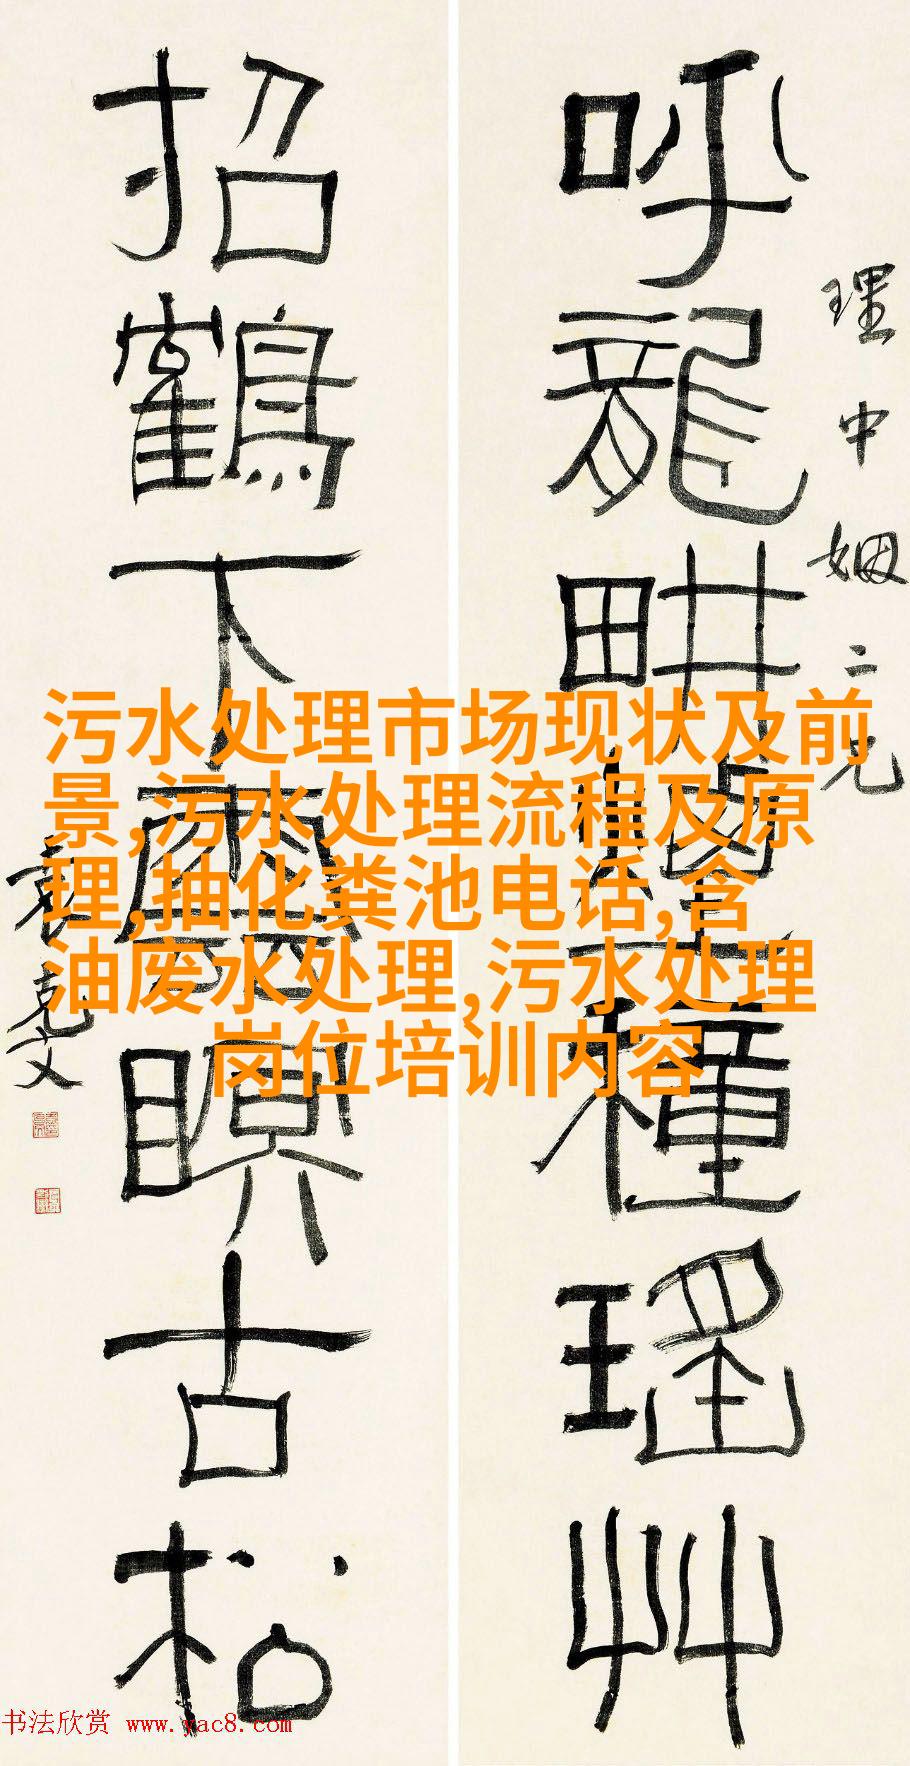 理中姻二兄
呼龍畊煙種瑤艸
招鶴下瞑古松
袁克文
污水处理市场现状及前
景,污水处理流程及原
理,抽化粪池电话,含
油废水处理,污水处理
岗位培训内容
书法欣赏 www.yac8.com